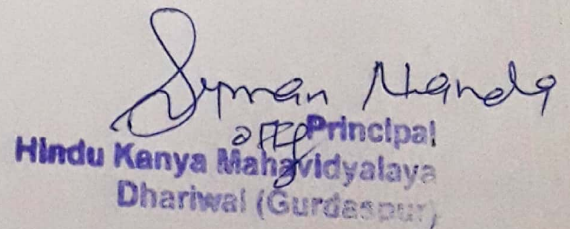 Suman Nanda
Offg Principal
Hindu Kanya Mahavidyalaya
Dhariwal (Gurdaspur)